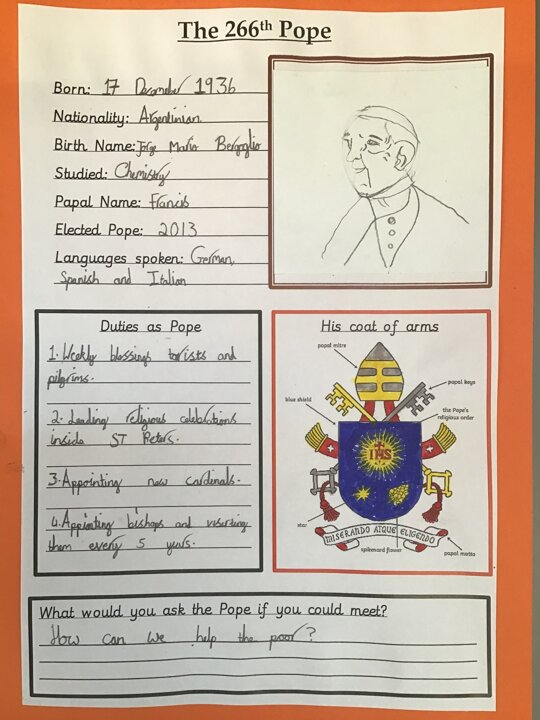 The 266th Pope
Born: 17 December 1936
Nationality: Argentinian
Birth Name: Jorge Mario Bergoglio
Studied: Chemistry
Papal Name: Francis
Elected Pope: 2013
Languages spoken: German,
Spanish and Italian
Duties as Pope
1. Weekly blessings torists and
pilgrims.
2. Leading religious celebrations
inside ST Peters.
3. Appointing new cardinals.
4. Appinting bishops and
them every 5 years.
His coat of arms
papal mitre
papal keys
blue shield
the Pope's
religious order
IHS
star
MISERANDO ATQUE ELIGENDO
spikenard flower
papal motto
What would you ask the Pope if you could meet?
How can we help the poor?